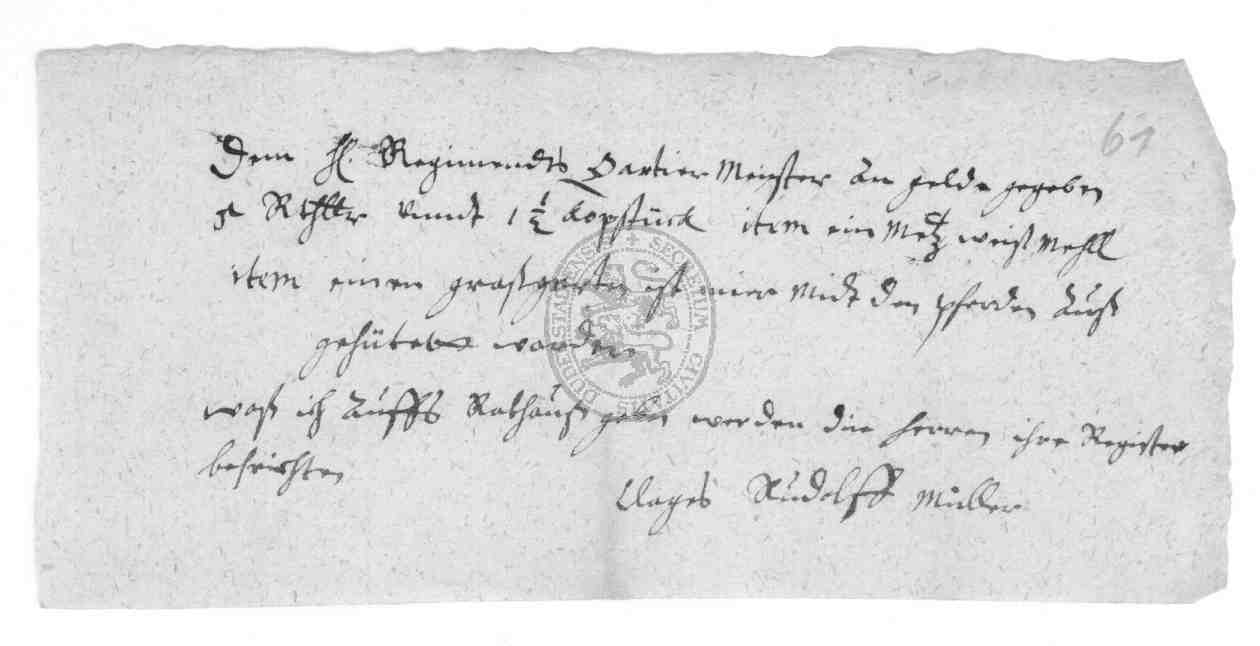 61
Dem H. Regimendts Qartier Meister An gelde gegeben
5 Rthllr Vnndt 1 1/2 Kopstück item ein Metz weiß Mehll
item einen graßgarten ist mier Midt den pferden Auß
gehütet worden
waß ich Auffs Rathauß geben werden die herren ihre Register
berichten
Clages Rudolff Muller
SECRETUM CIVITATIS DUDERSTADENSIS